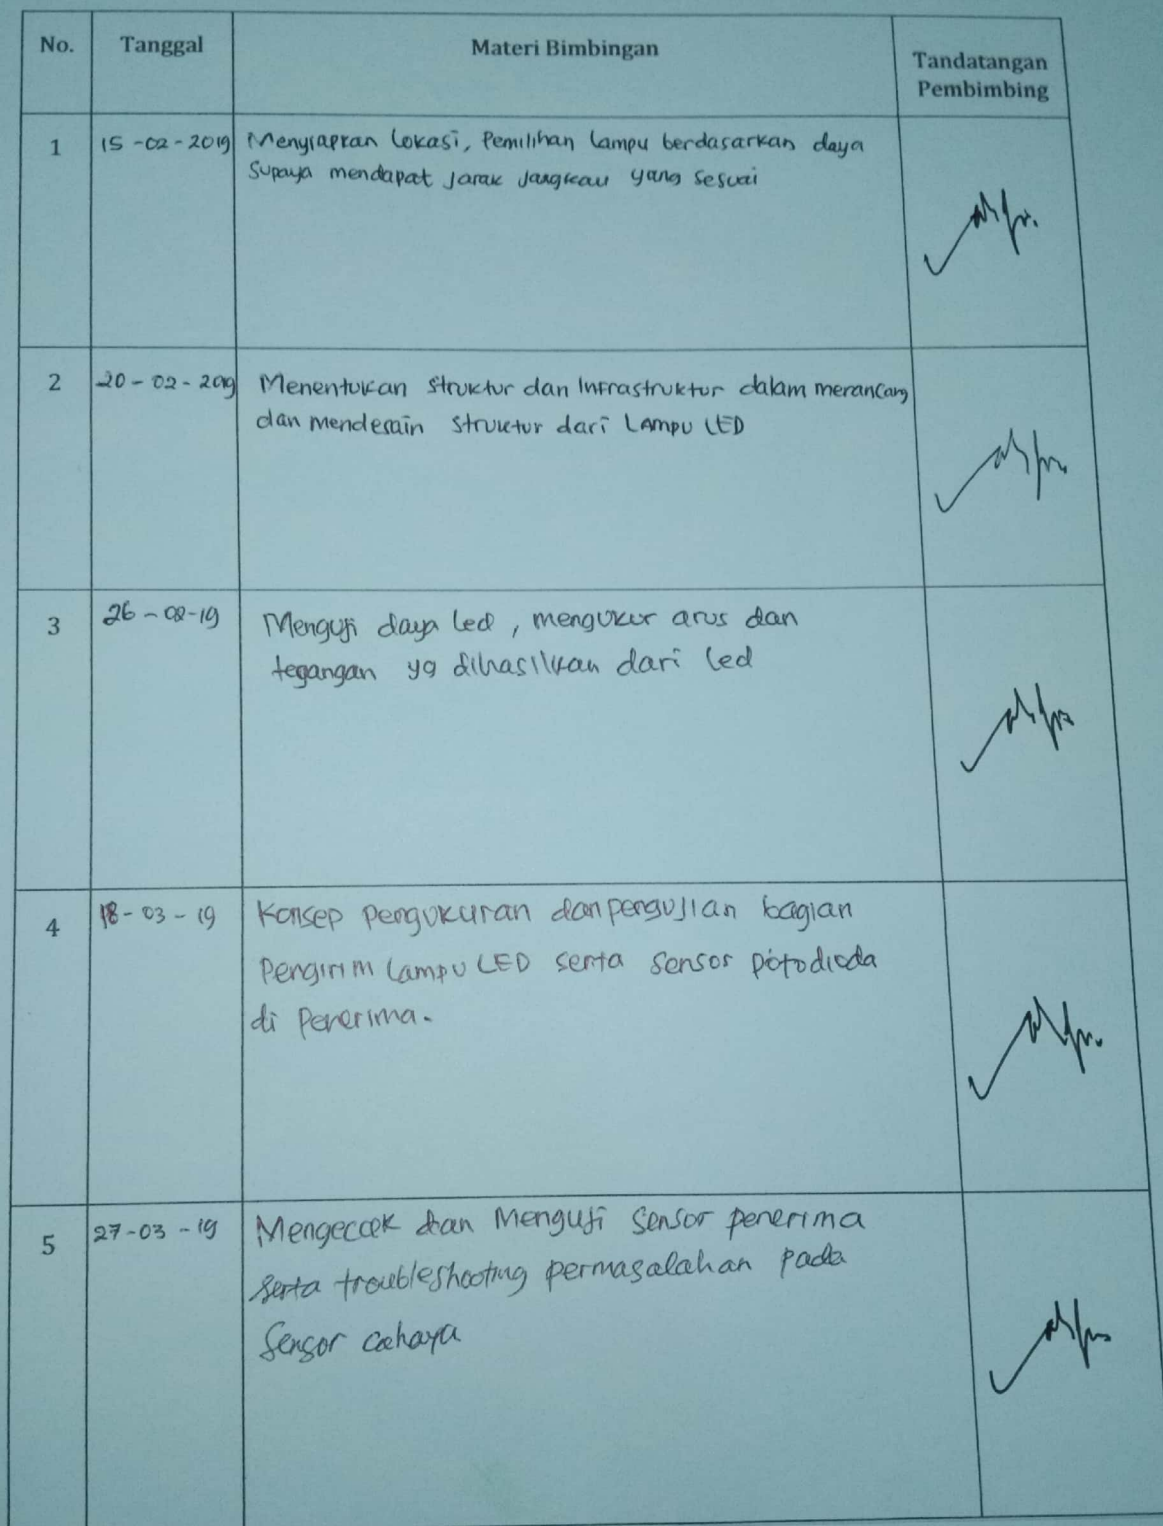 No. Tanggal Materi Bimbingan Tandatangan
Pembimbing
1 15-02-2019 Menyiapkan lokasi, Pemilihan lampu berdasarkan daya
Supaya mendapat Jarak Jangkau yang sesuai
2 20-02-2019 Menentukan struktur dan Infrastruktur dalam merancang
dan mendesain struktur dari LAMPU LED
3 26-02-19 Menguji daya led, mengukur arus dan
tegangan yg dihasilkan dari led
4 18-03-19 Konsep pengukuran dan pengujian bagian
Pengirim Lampu LED serta sensor potodioda
di Penerima.
5 27-03-19 Mengeccek dan Menguji Sensor penerima
serta troubleshooting permasalahan pada
Sensor cahaya